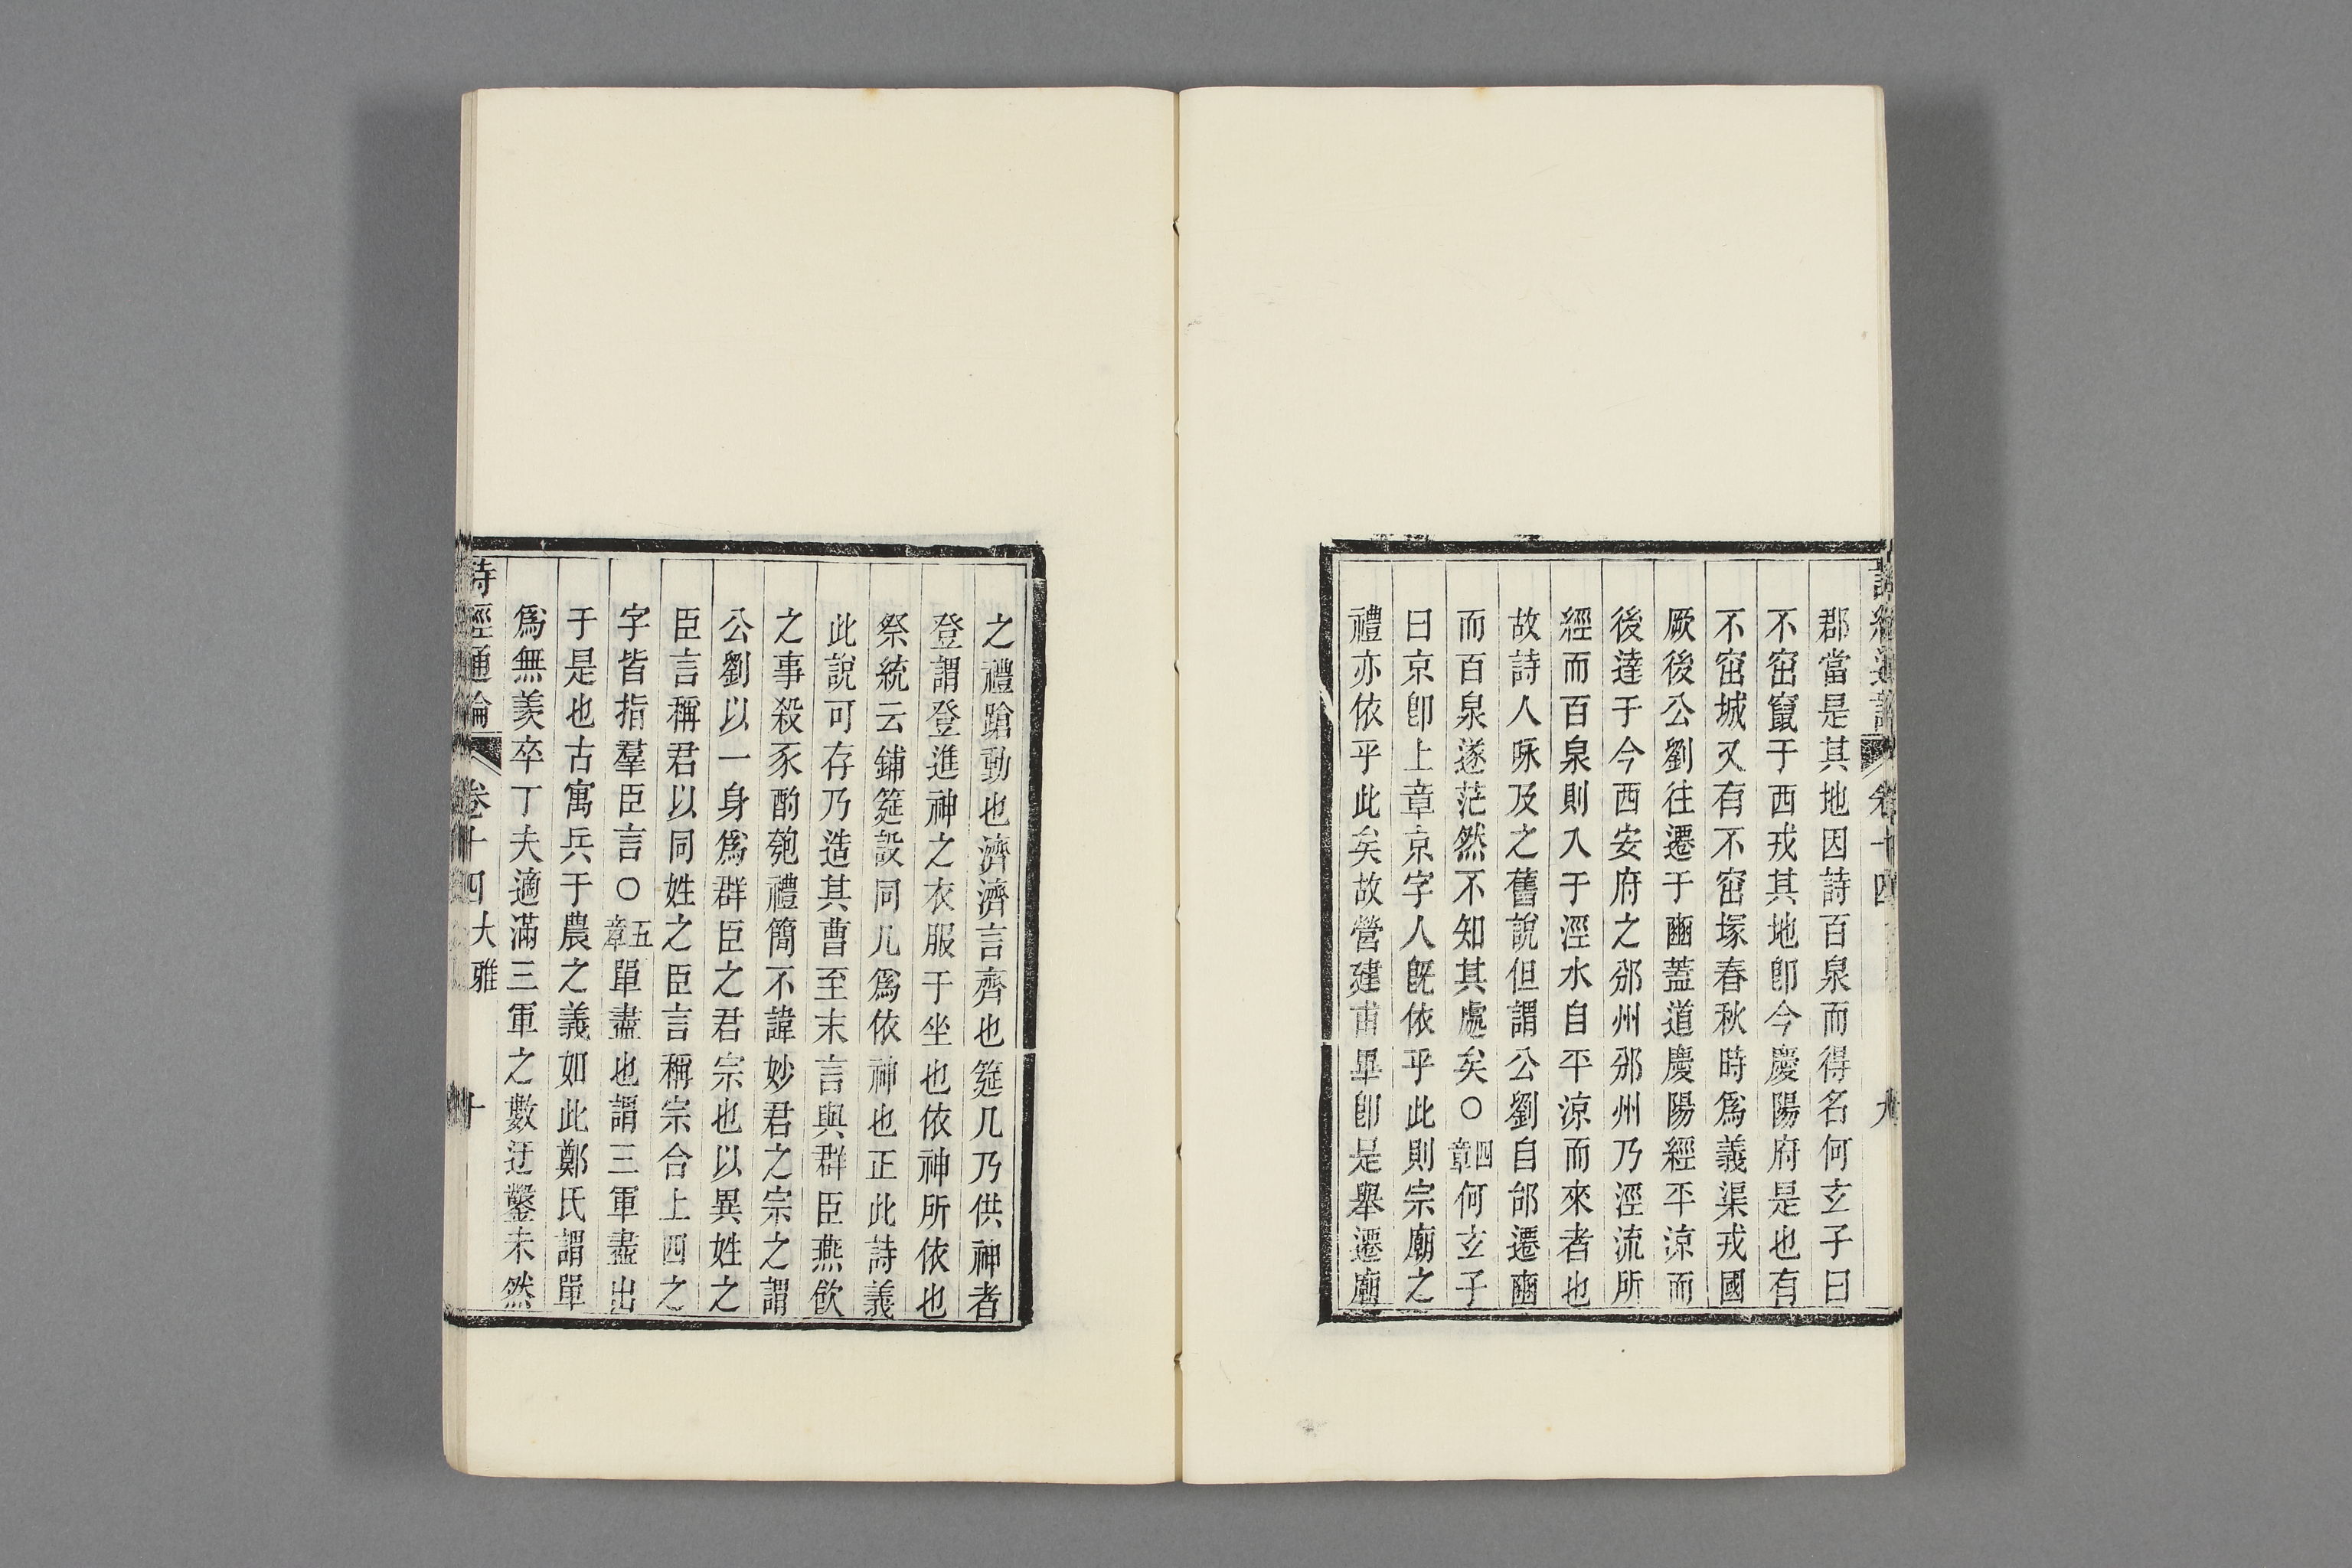 詩經通論 卷十四 九
郡當是其地因詩百泉而得名何玄子曰
不窋竄于西戎其地卽今慶陽府是也有
不窋城又有不窋塚春秋時爲義渠戎國
厥後公劉往遷于豳蓋道慶陽經平涼而
後達于今西安府之邠州邠州乃涇流所
經而百泉則入于涇水自平涼而來者也
故詩人咏及之舊說但謂公劉自邰遷豳
而百泉遂茫然不知其處矣○四章何玄子
曰京卽上章京字人旣依乎此則宗廟之
禮亦依乎此矣故營建甫畢卽是舉遷廟
之禮蹌動也濟濟言齊也筵几乃供神者
登謂登進神之衣服于坐也依神所依也
祭統云鋪筵設同几爲依神也正此詩義
此說可存乃造其曹至末言與群臣燕飲
之事殺豕酌匏禮簡不諱妙君之宗之謂
公劉以一身爲群臣之君宗也以異姓之
臣言稱君以同姓之臣言稱宗合上四之
字皆指羣臣言○五章單盡也謂三軍盡出
于是也古寓兵于農之義如此鄭氏謂單
爲無羨卒丁夫適滿三軍之數迂鑿未然
詩經通論 卷十四 大雅 十